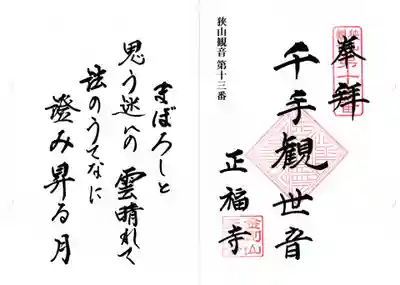 奉拝
千手観世音
正福寺
狭山観音 第十三番
まぼろしと
思う迷いの 雲晴れて
法のうてなに
澄み昇る月
金剛山